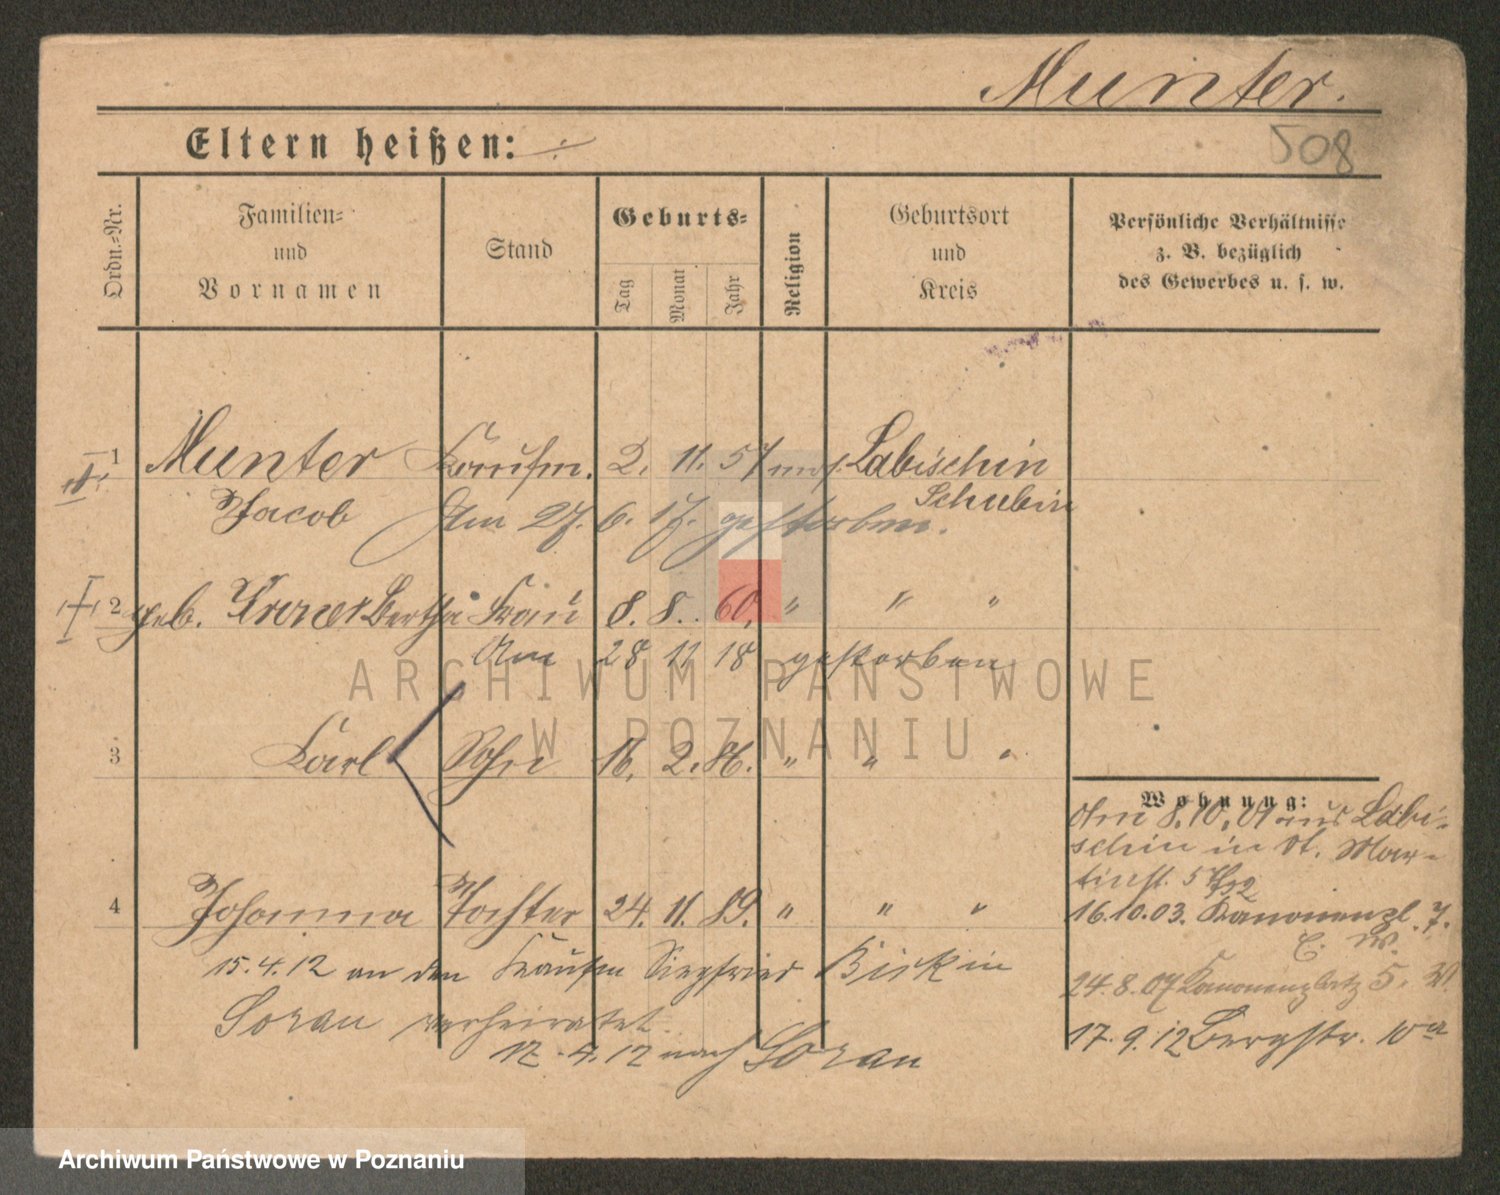 Munter.
508
Eltern heißen:
Ordn.-Nr.
Familien-
und
Vornamen
Stand
Geburts-
Tag
Monat
Jahr
Religion
Geburtsort
und
Kreis
Persönliche Verhältnisse
z. B. bezüglich
des Gewerbes u. s. w.
1 Munter Kaufm. 2. 11. 57 mos. Labischin
Schubin
Jacob Am 27. 6. 17. gestorben.
2 geb. Bertha Frau 8. 8. 60. " " "
Am 28 11 18 gestorben
3 Karl Sohn 16. 2. 86. " " "
4 Johanna Tochter 24. 11. 89. " " "
15.4.12 an den Kaufm Siegfried Birkin
Soran verheiratet.
12.4.12 nach Soran
Wohnung:
Am 8.10.01 aus Labi-
schin in St. Mar-
tinst. 5
16.10.03. Kanonenpl. 7.
24.8.07 Kanonenplatz 5.
17.9.12 Bergstr. 10a
ARCHIWUM PAŃSTWOWE
W POZNANIU
Archiwum Państwowe w Poznaniu